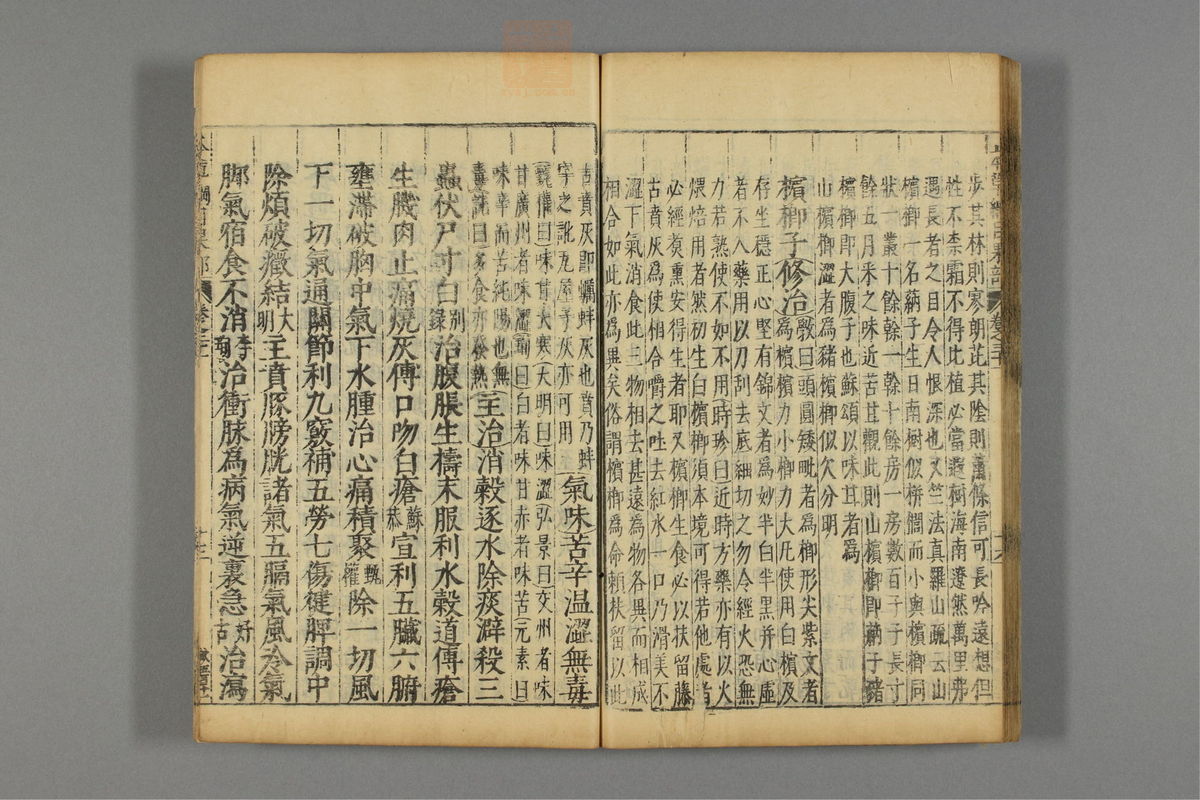 步其林則寒朗庇其陰則蕭條信可長吟遠想但
性不柰霜不得北植必當遐樹海南遼然萬里弗
遇長者之目令人恨深也又竺法真羅山疏云山
檳榔一名蒳子生日南樹似栟櫚而小與檳榔同
狀一叢十餘幹一幹十餘房一房數百子子長寸
餘五月采之味近苦甘觀此則山檳榔即蒳子豬
檳榔即大腹子也蘇頌以味甘者爲
山檳榔澀者爲豬檳榔似欠分明
檳榔子修治斆曰頭圓矮毗者爲榔形尖紫文者
爲檳檳力小榔力大凡使用白檳及
存坐穩正心堅有錦文者爲妙半白半黑并心虛
者不入藥用以刀刮去底細切之勿令經火恐無
力若熟使不如不用時珍曰近時方藥亦有以火
煨焙用者然初生白檳榔須本境可得若他處者
必經煮熏安得生者耶又檳榔生食必以扶留藤
古賁灰爲使相合嚼之吐去紅水一口乃滑美不
澀下氣消食此三物相去甚遠為物各異而相成
相合如此亦爲異矣俗謂檳榔爲命賴扶留以此
古賁灰即蠣蚌灰也賁乃蚌
字之訛瓦屋子灰亦可用氣味苦辛温澀無毒
甄權曰味甘大寒大明曰味澀弘景曰交州者味
甘廣州者味澀珣曰白者味甘赤者味苦元素曰
味辛而苦純陽也無
毒詵曰多食亦發熱主治消穀逐水除痰澼殺三
蟲伏尸寸白别錄治腹脹生擣末服利水穀道傅瘡
生肌肉止痛燒灰傅口吻白瘡蘇恭宣利五臟六腑
壅滯破胸中氣下水腫治心痛積聚甄權除一切風
下一切氣通關節利九竅補五勞七傷健脾調中
除煩破癥結大明主賁豚膀胱諸氣五膈氣風冷氣
脚氣宿食不消李珣治衝脉為病氣逆裏急好古治瀉